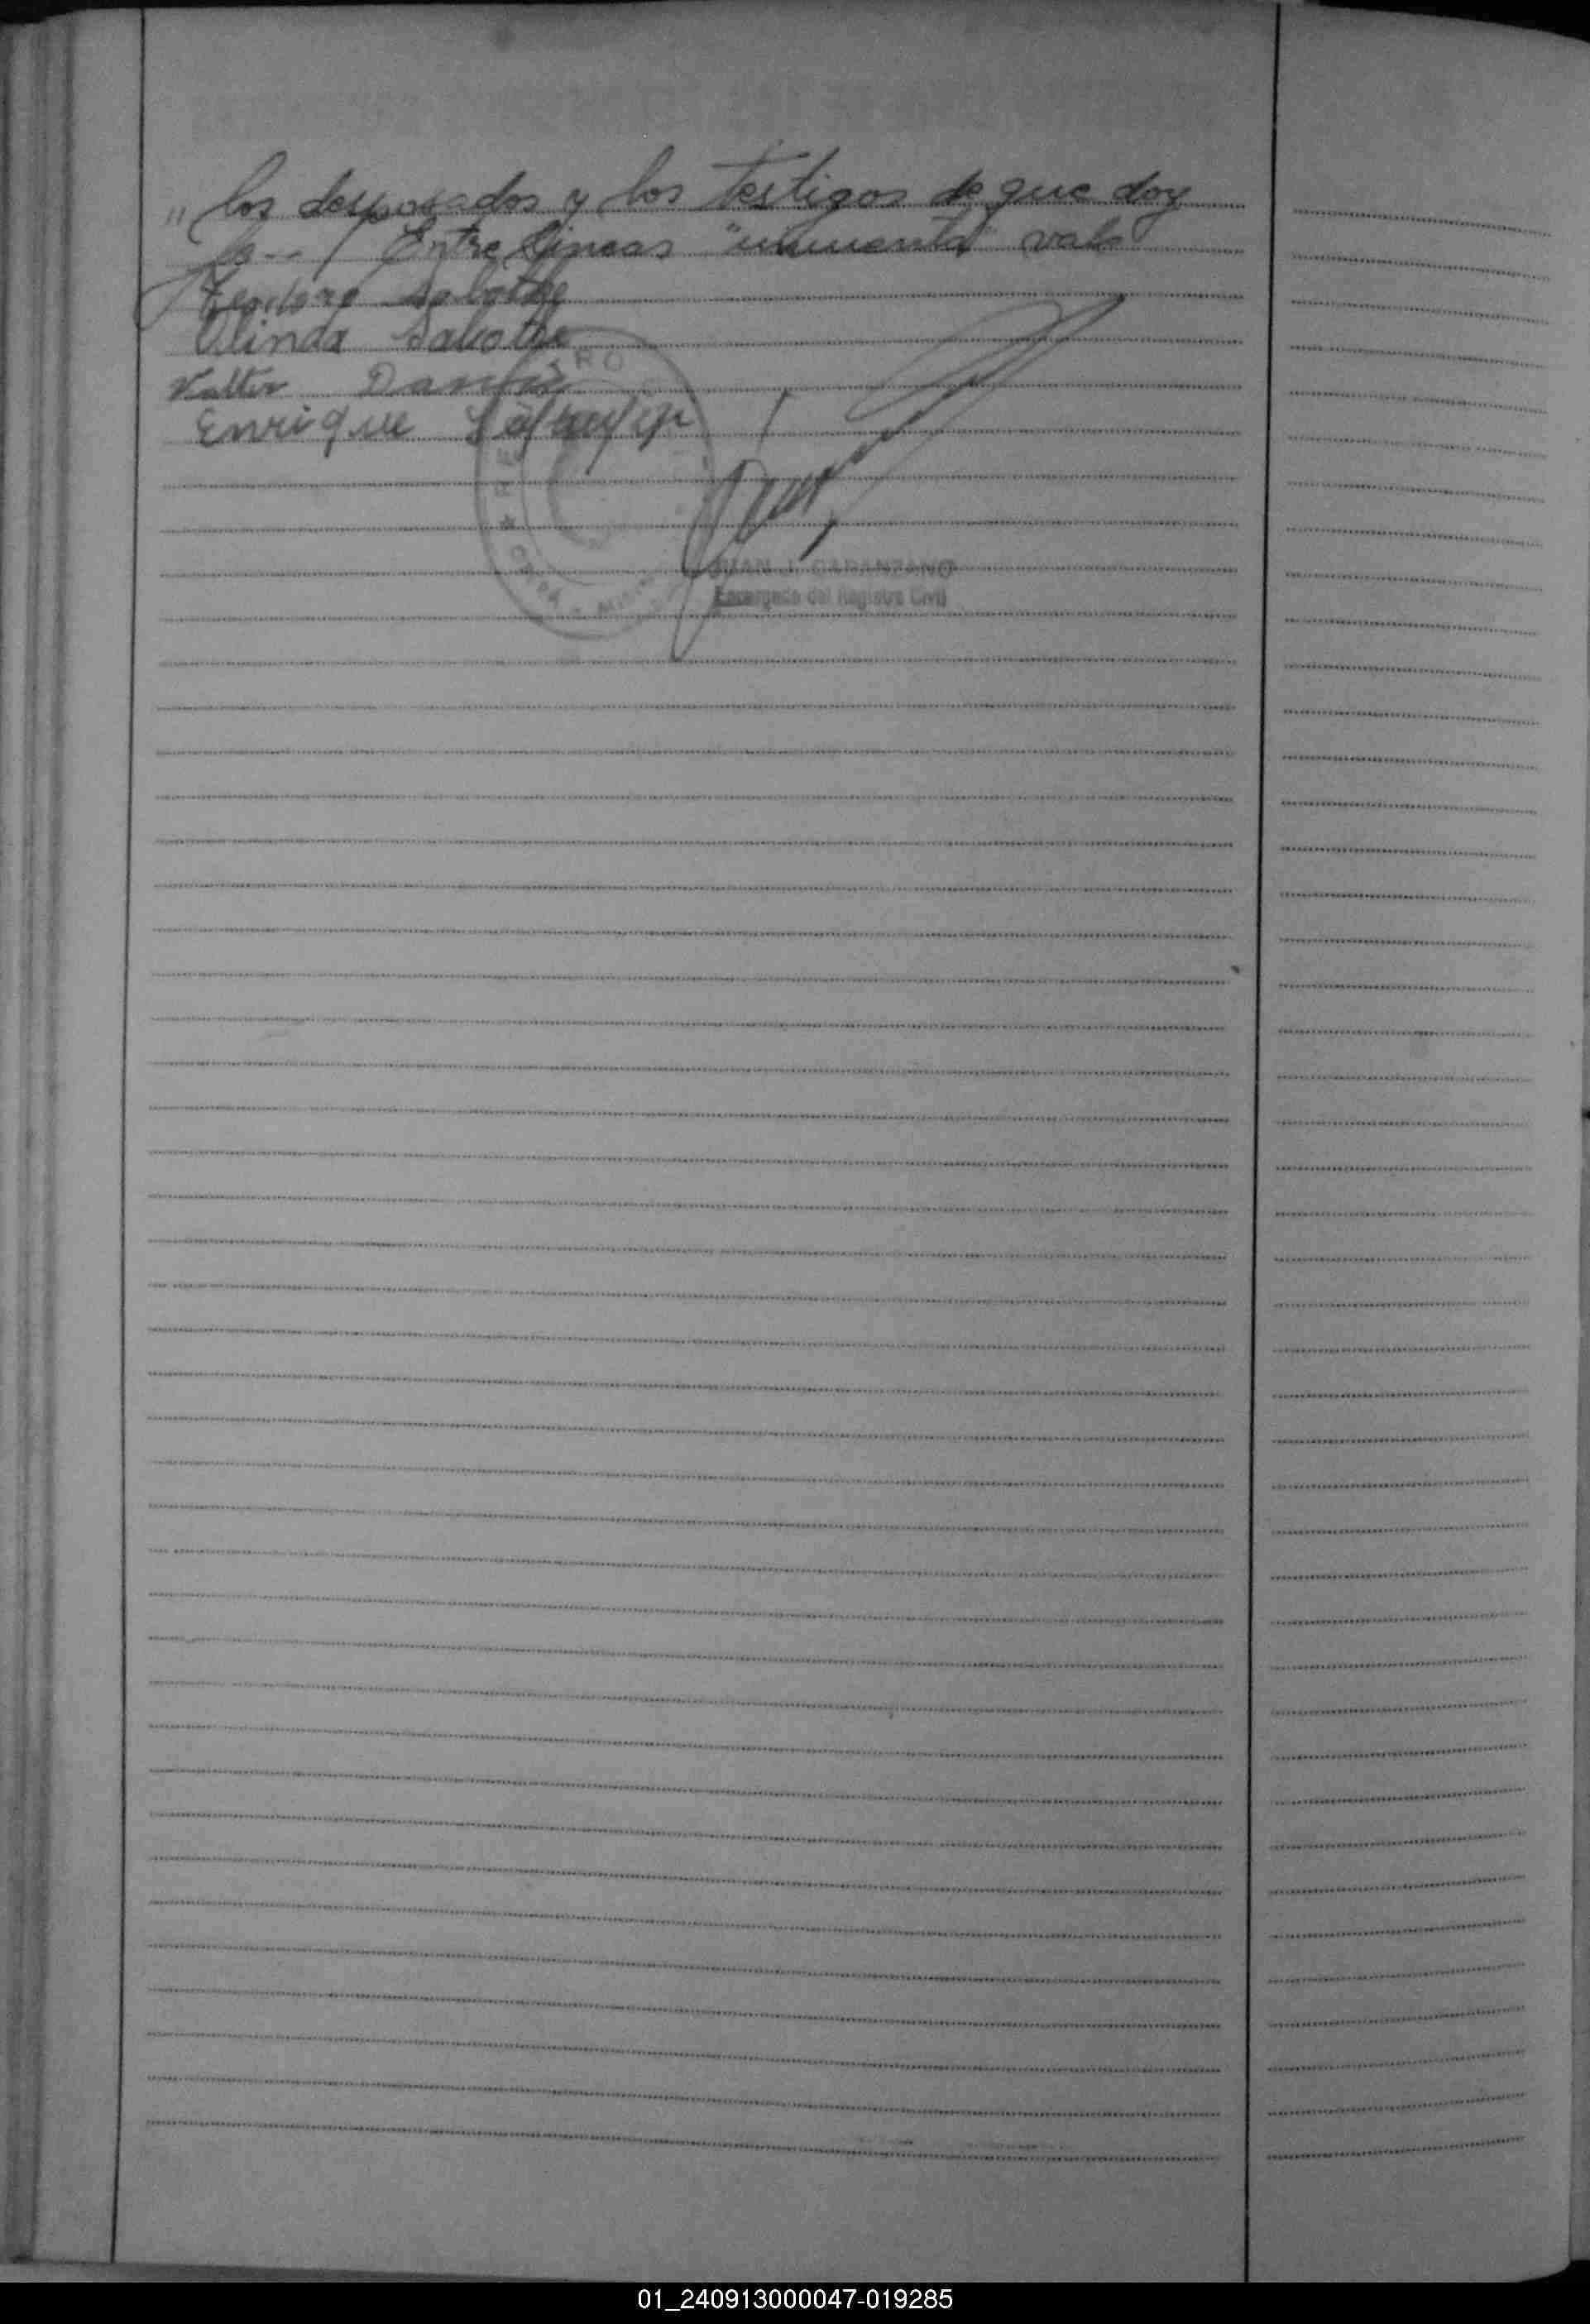 " los desposados y los testigos de que doy
fe -- / Entre líneas " " vale
Teodoro Sabothe
Olinda Sabothe
Valter
Enrique
JUAN J. CARANZANO
Encargado del Registro Civil
01_240913000047-019285